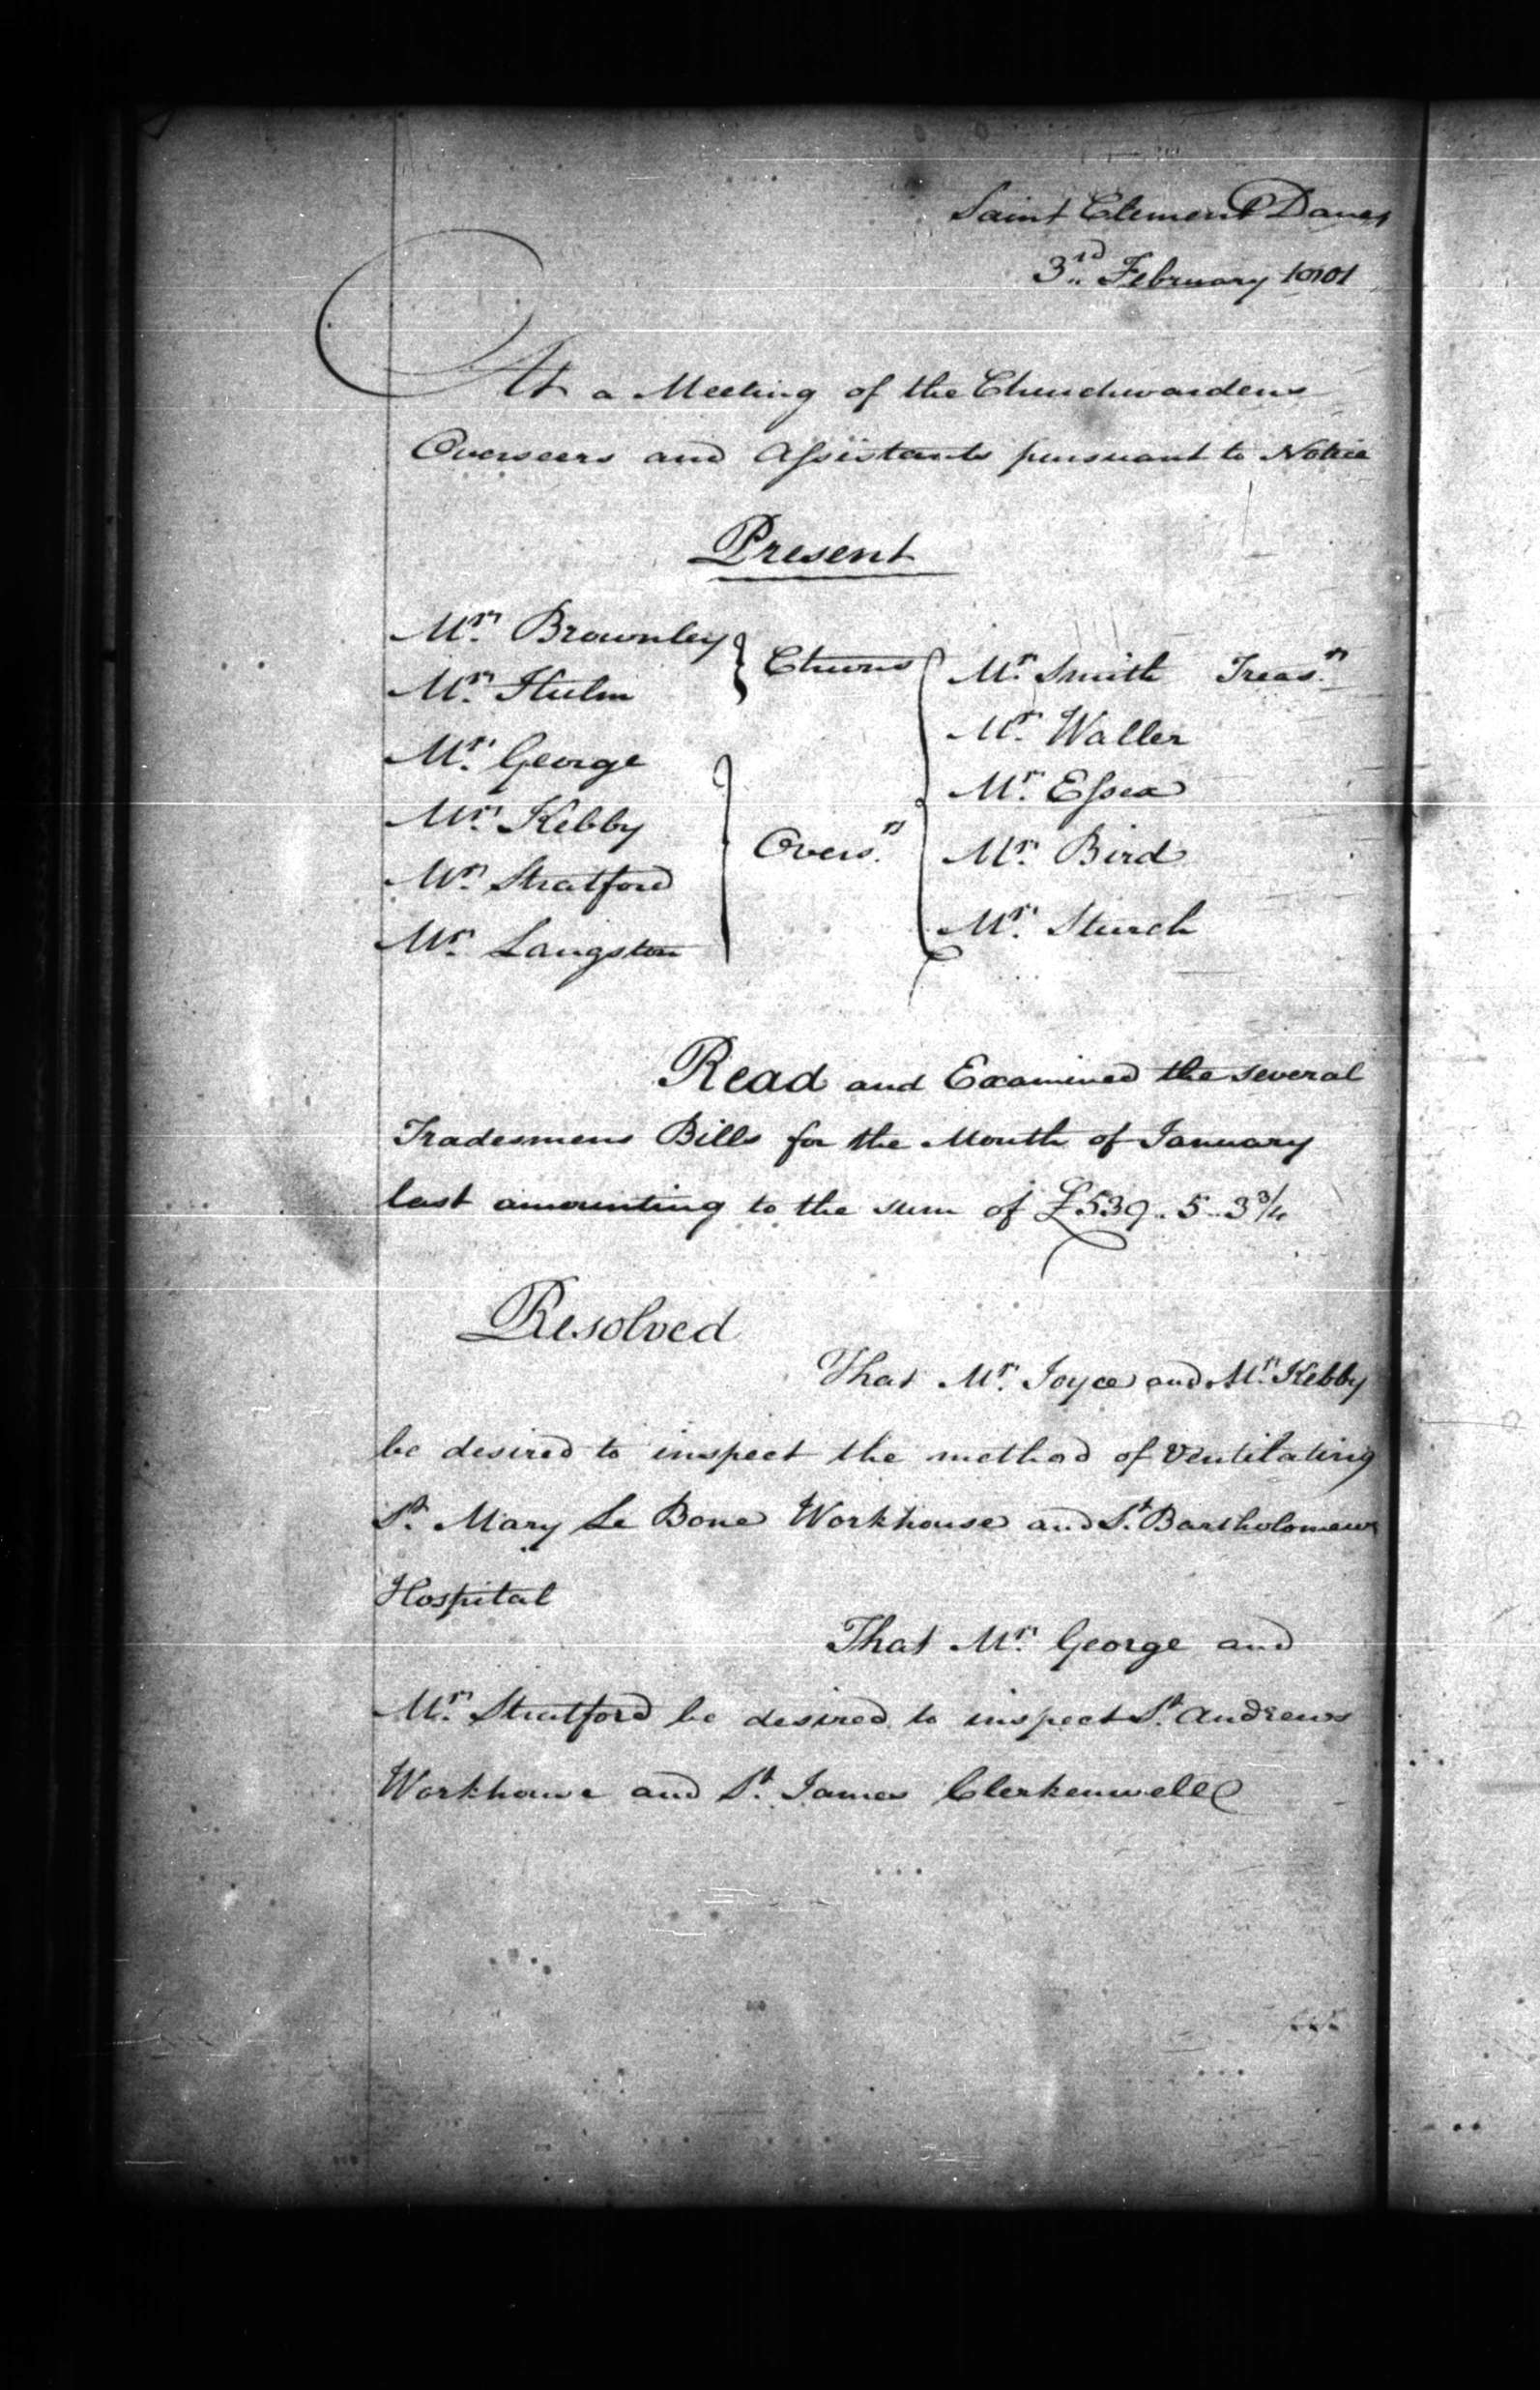 Saint Clement Danes
3rd February 1801
At a Meeting of the Churchwardens
Overseers and Assistants pursuant to Notice
Present
Mr. Brownley
Mr. Hulm
Chwns
Mr. George
Mr. Kebby
Mr. Stratford
Mr. Langston
Overs.rs
Mr. Smith Treas.r
Mr. Waller
Mr. Essex
Mr. Bird
Mr. Sturch
Read and Examined the several
Tradesmens Bills for the Month of January
last amounting to the sum of £539..5..3¾
Resolved
That Mr. Joyce and Mr. Kebby
be desired to inspect the method of Ventilating
St. Mary Le Bone Workhouse and St. Bartholomews
Hospital
That Mr. George and
Mr. Stratford be desired to inspect St. Andrews
Workhouse and St. James Clerkenwell